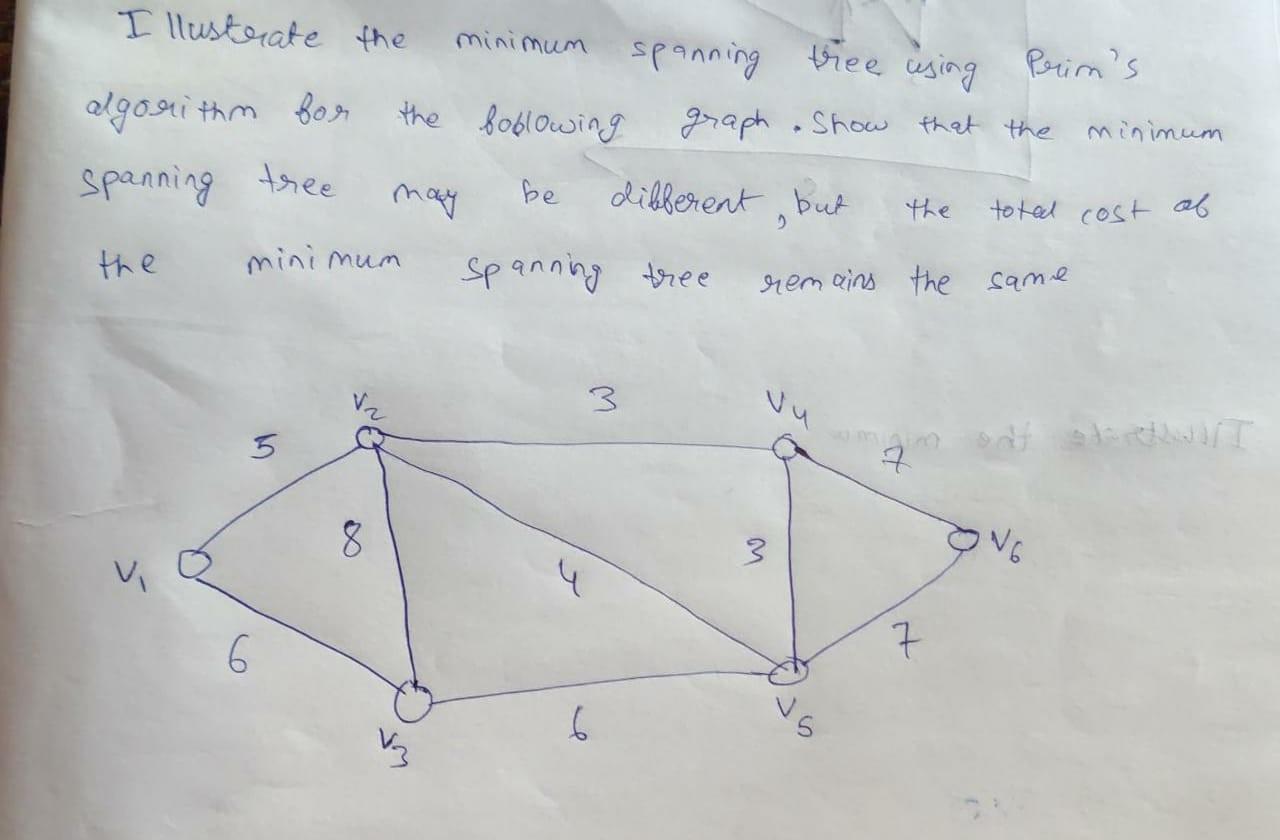 Illustrate the minimum spanning tree using Prim's
algorithm for the following graph. Show that the minimum
spanning tree may be different, but the total cost of
the minimum spanning tree remains the same
V2 3 V4
5 7
V1 8 4 3 V6
6 7
V3 6 V5